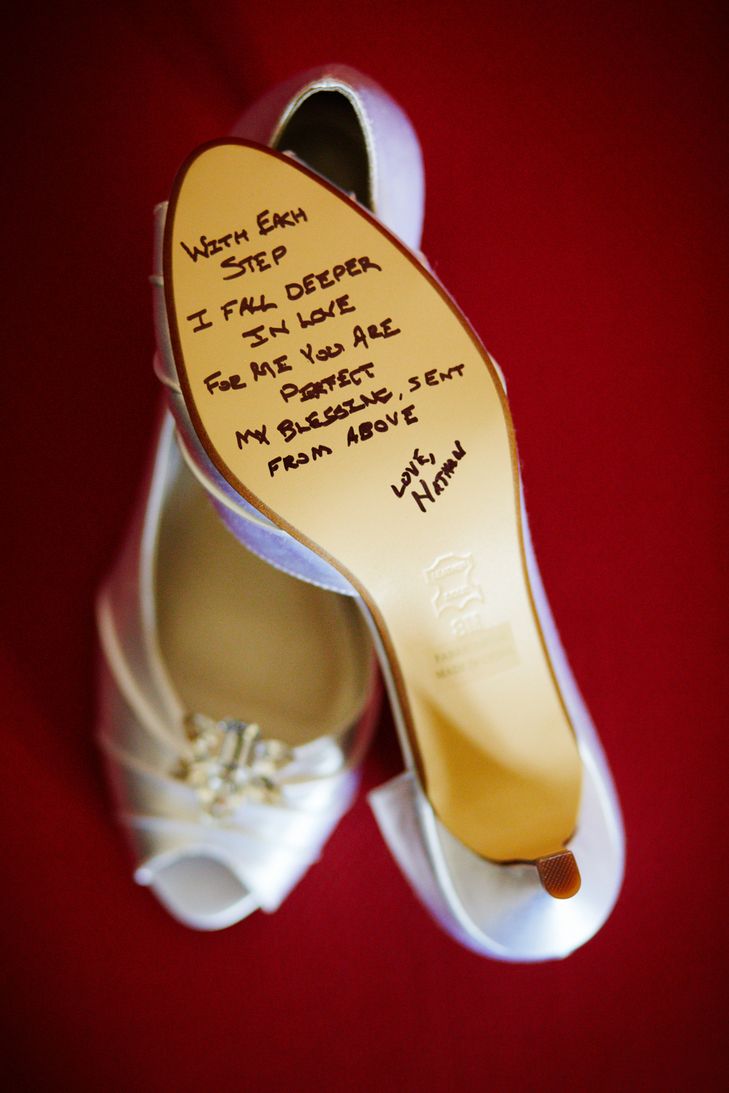 With Each
Step
I Fall Deeper
In Love
For Me You Are
Perfect
My Blessing, Sent
From Above
Love,
Nathan
LEATHER
8M